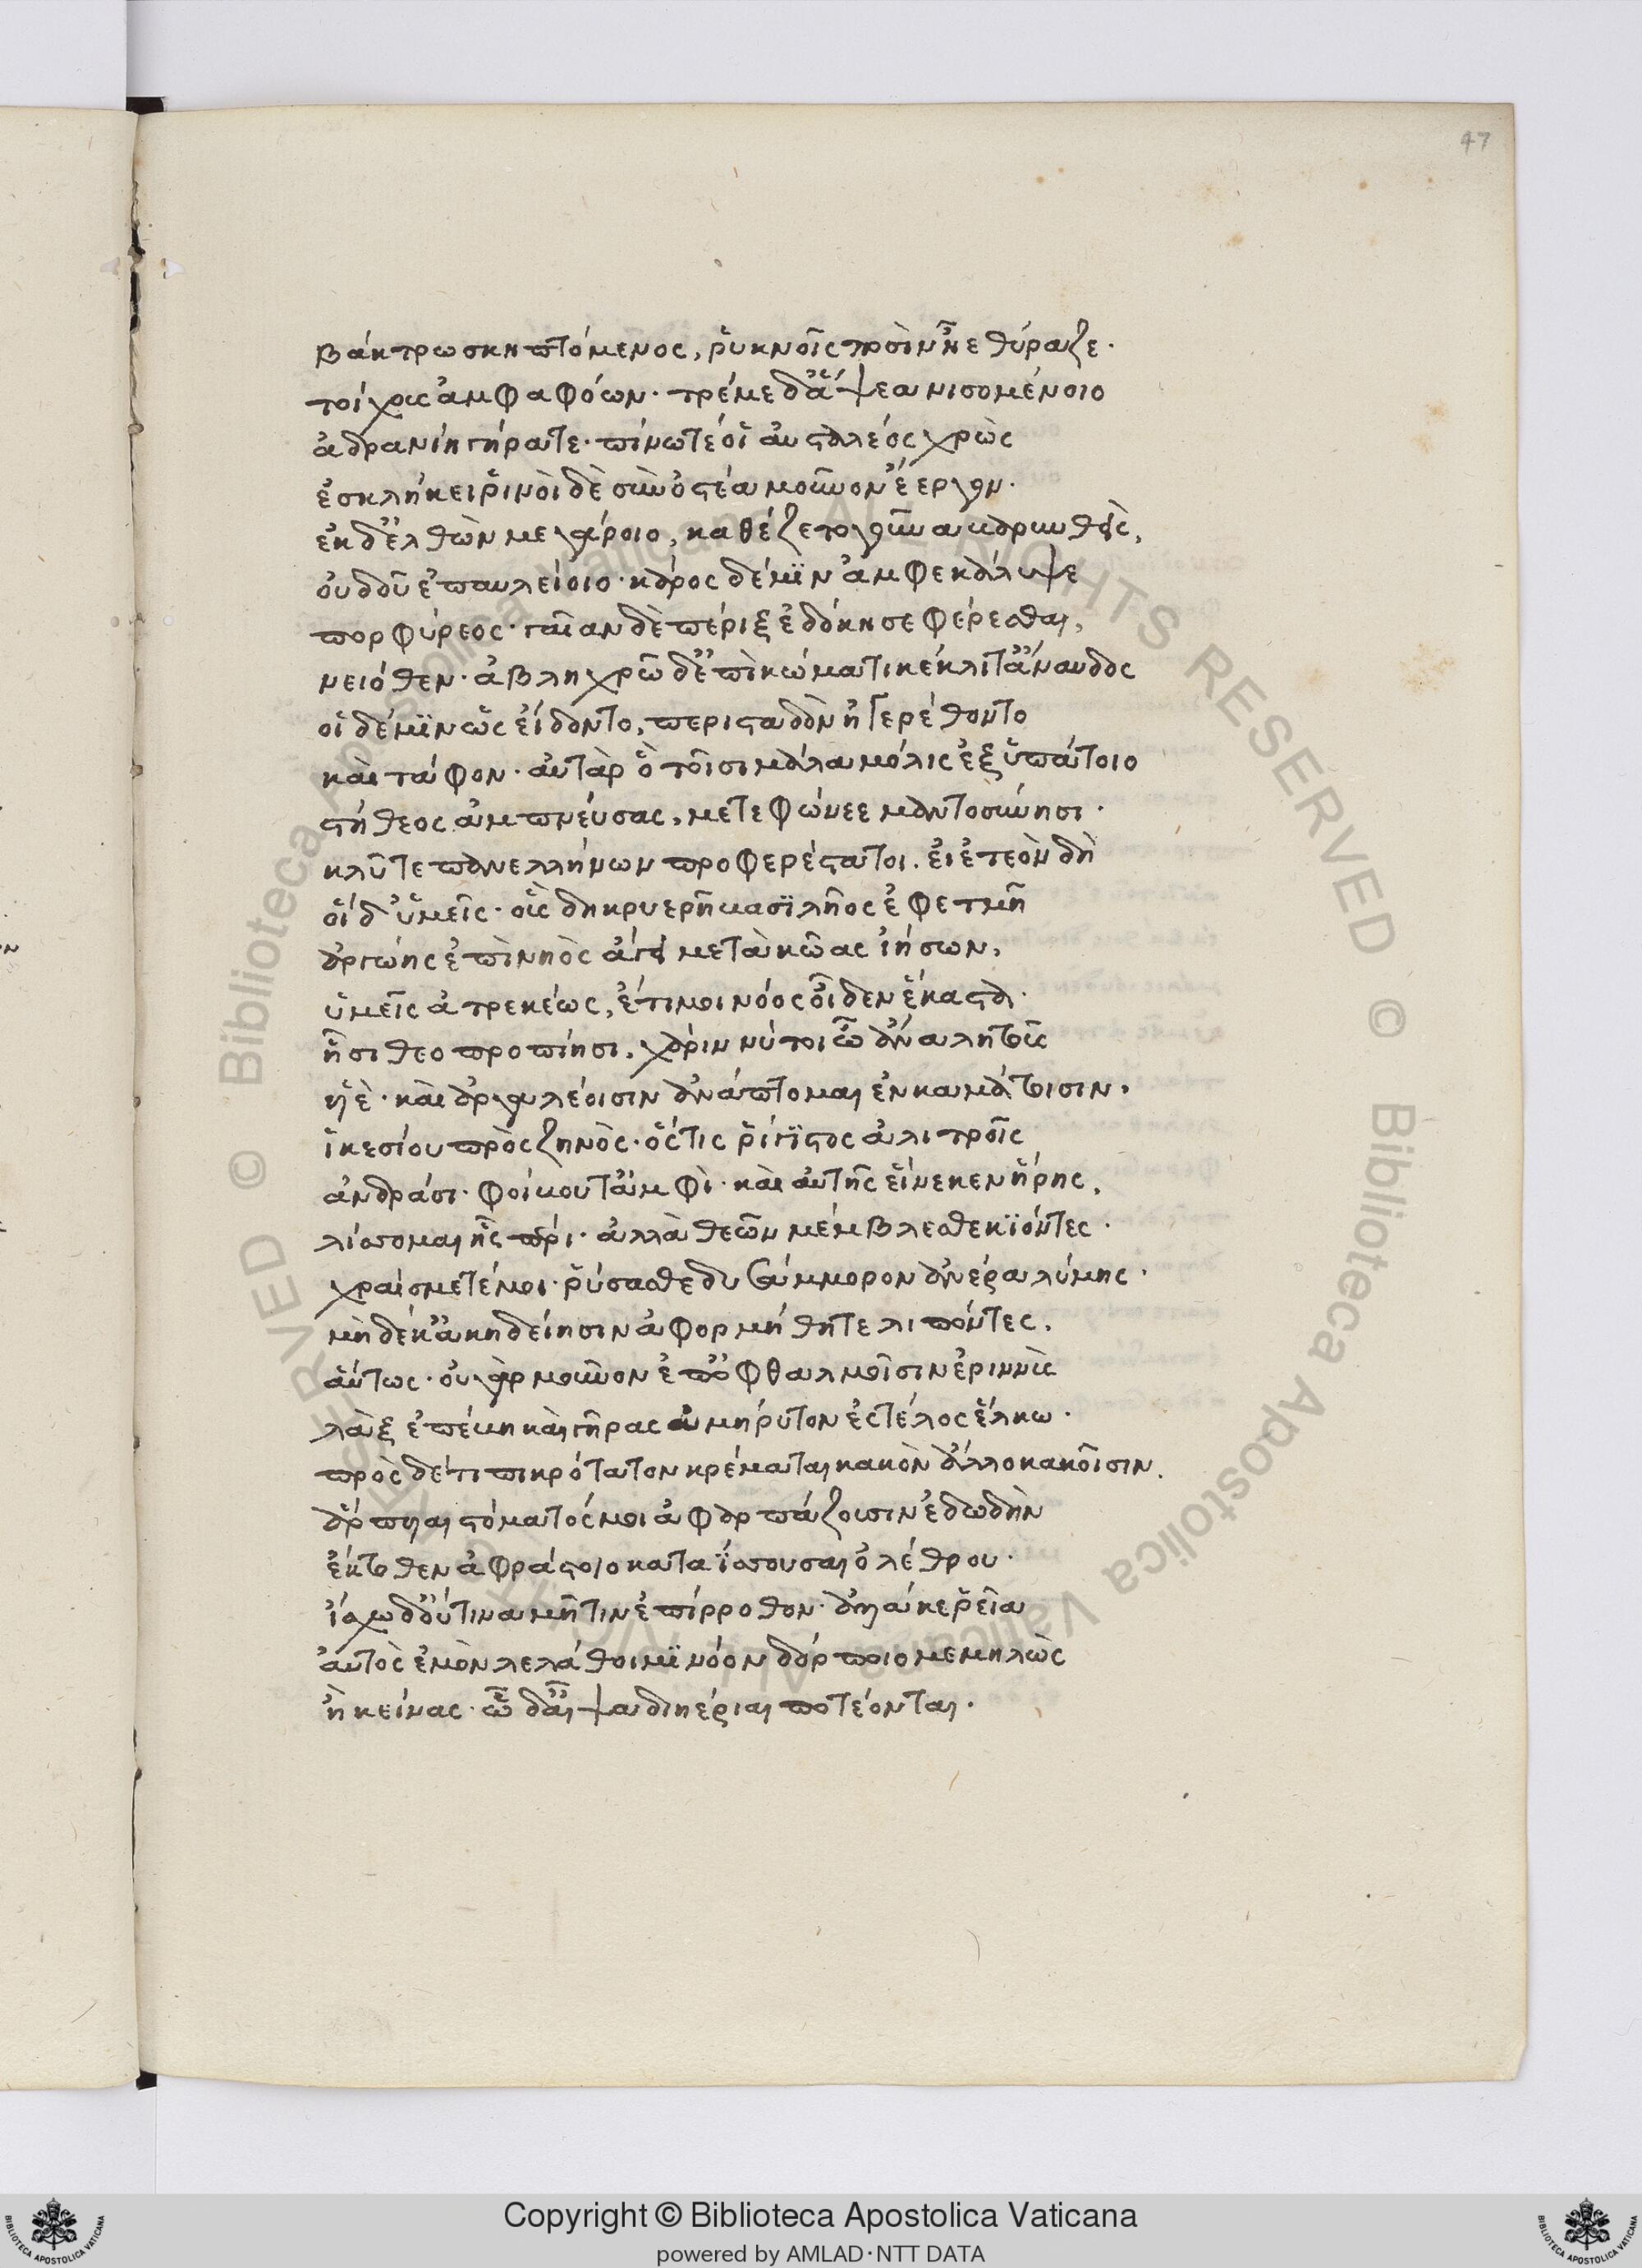 47
βάκτρω σκηπτόμενος, ῥυκνοῖς ποσὶν ᾖε θύραζε·
τοίχους ἀμφαφόων· τρέμε δ' ἅψεα νισομένοιο
ἀδρανίη γήραΐ τε· πίνω τέ οἱ αὐσταλέος χρὼς
ἐσκλήκει ῥινοὶ δὲ σὺν ὀστέα μοῦνον ἔεργον.
ἐκ δ' ἐλθὼν μεγάροιο, καθέζετο γοῦνα βαρυνθεὶς,
οὐδοῦ ἐπ' αυλείοιο· κάρος δέ μϊν ἀμφεκάλυψε
πορφύρεος· γαῖαν δὲ πέριξ ἐδόκησε φέρεσθαι,
νειόθεν· ἀβληχρῶ δ' ἐπὶ κώματι κέκλιτ' ἄναυδος
οἱ δέ μϊν ὡς εἴδοντο, περισταδὸν ἠγερέθοντο
καὶ τάφον· αὐτὰρ ὁ τοῖσι μάλα μόλις ἐξ ὑπάτοιο
στήθεος ἀμπνεύσας, μετεφώνεε μαντοσύνησι·
κλῦτε πανελλήνων προφερέστατοι. εἰ ἐτεὸν δὴ
οἵδ' ὑμεῖς· οὓς δὴ κρυερῆ βασϊλῆος ἐφετμῆ
ἀργώης ἐπὶ νηὸς ἄγει μετὰ κῶας ἰήσων,
ὑμεῖς ἀτρεκέως, ἔτι μοι νόος οἶδεν ἕκαστα·
ἧσι θεοπροπίησι. χάριν νύ τοι ὦ ἄνα λητοῦς
υἱὲ· καὶ ἀργαλέοισιν ἀνάπτομαι ἐν καμάτοισιν.
ἱκεσίου πρὸς ζηνὸς· ὅστις ῥίγϊστος ἀλιτροῖς
ἀνδράσι· φοίβου τ' ἀμφὶ· καὶ αὐτῆς εἵνεκεν ἥρης,
λίσσομαι ἧς πέρι· ἀλλὰ θεῶν μέμβλεσθε κϊόντες·
χραίσμετέ μοι· ῥύσασθε δυσάμμορον ἀνέρα λύμης·
μὴ δέ κ' ἀκηδείησιν ἀφορμήθητε λιπόντες.
αὔτως· οὐ γὰρ μοῦνον ἐπ' ὀφθαλμοῖσιν ἐριννὺς
λὰξ ἐπέβη καὶ γῆρας ἀμήρυτον ἐς τέλος ἕλκω·
πρὸς δ' ἔτι πικρότατον κρέμαται κακὸν ἄλλο κακοῖσιν.
ἅρπυιαι στόματός μοι ἀφαρπάζουσιν ἐδωδὴν
ἔκποθεν ἀφράστοιο καταΐσσουσαι ὀλέθρου·
ἴσχω δ' οὔτινα μῆτιν ἐπίρροθον· ἀλλά κε ῥεῖα
αὐτὸς ἐμὸν λελάθοιμϊ νόον δόρποιο μεμηλὼς
ἢ κείνας· ὧδ' αἶψα διηέριαι ποτέονται.
Copyright © Biblioteca Apostolica Vaticana
powered by AMLAD·NTT DATA